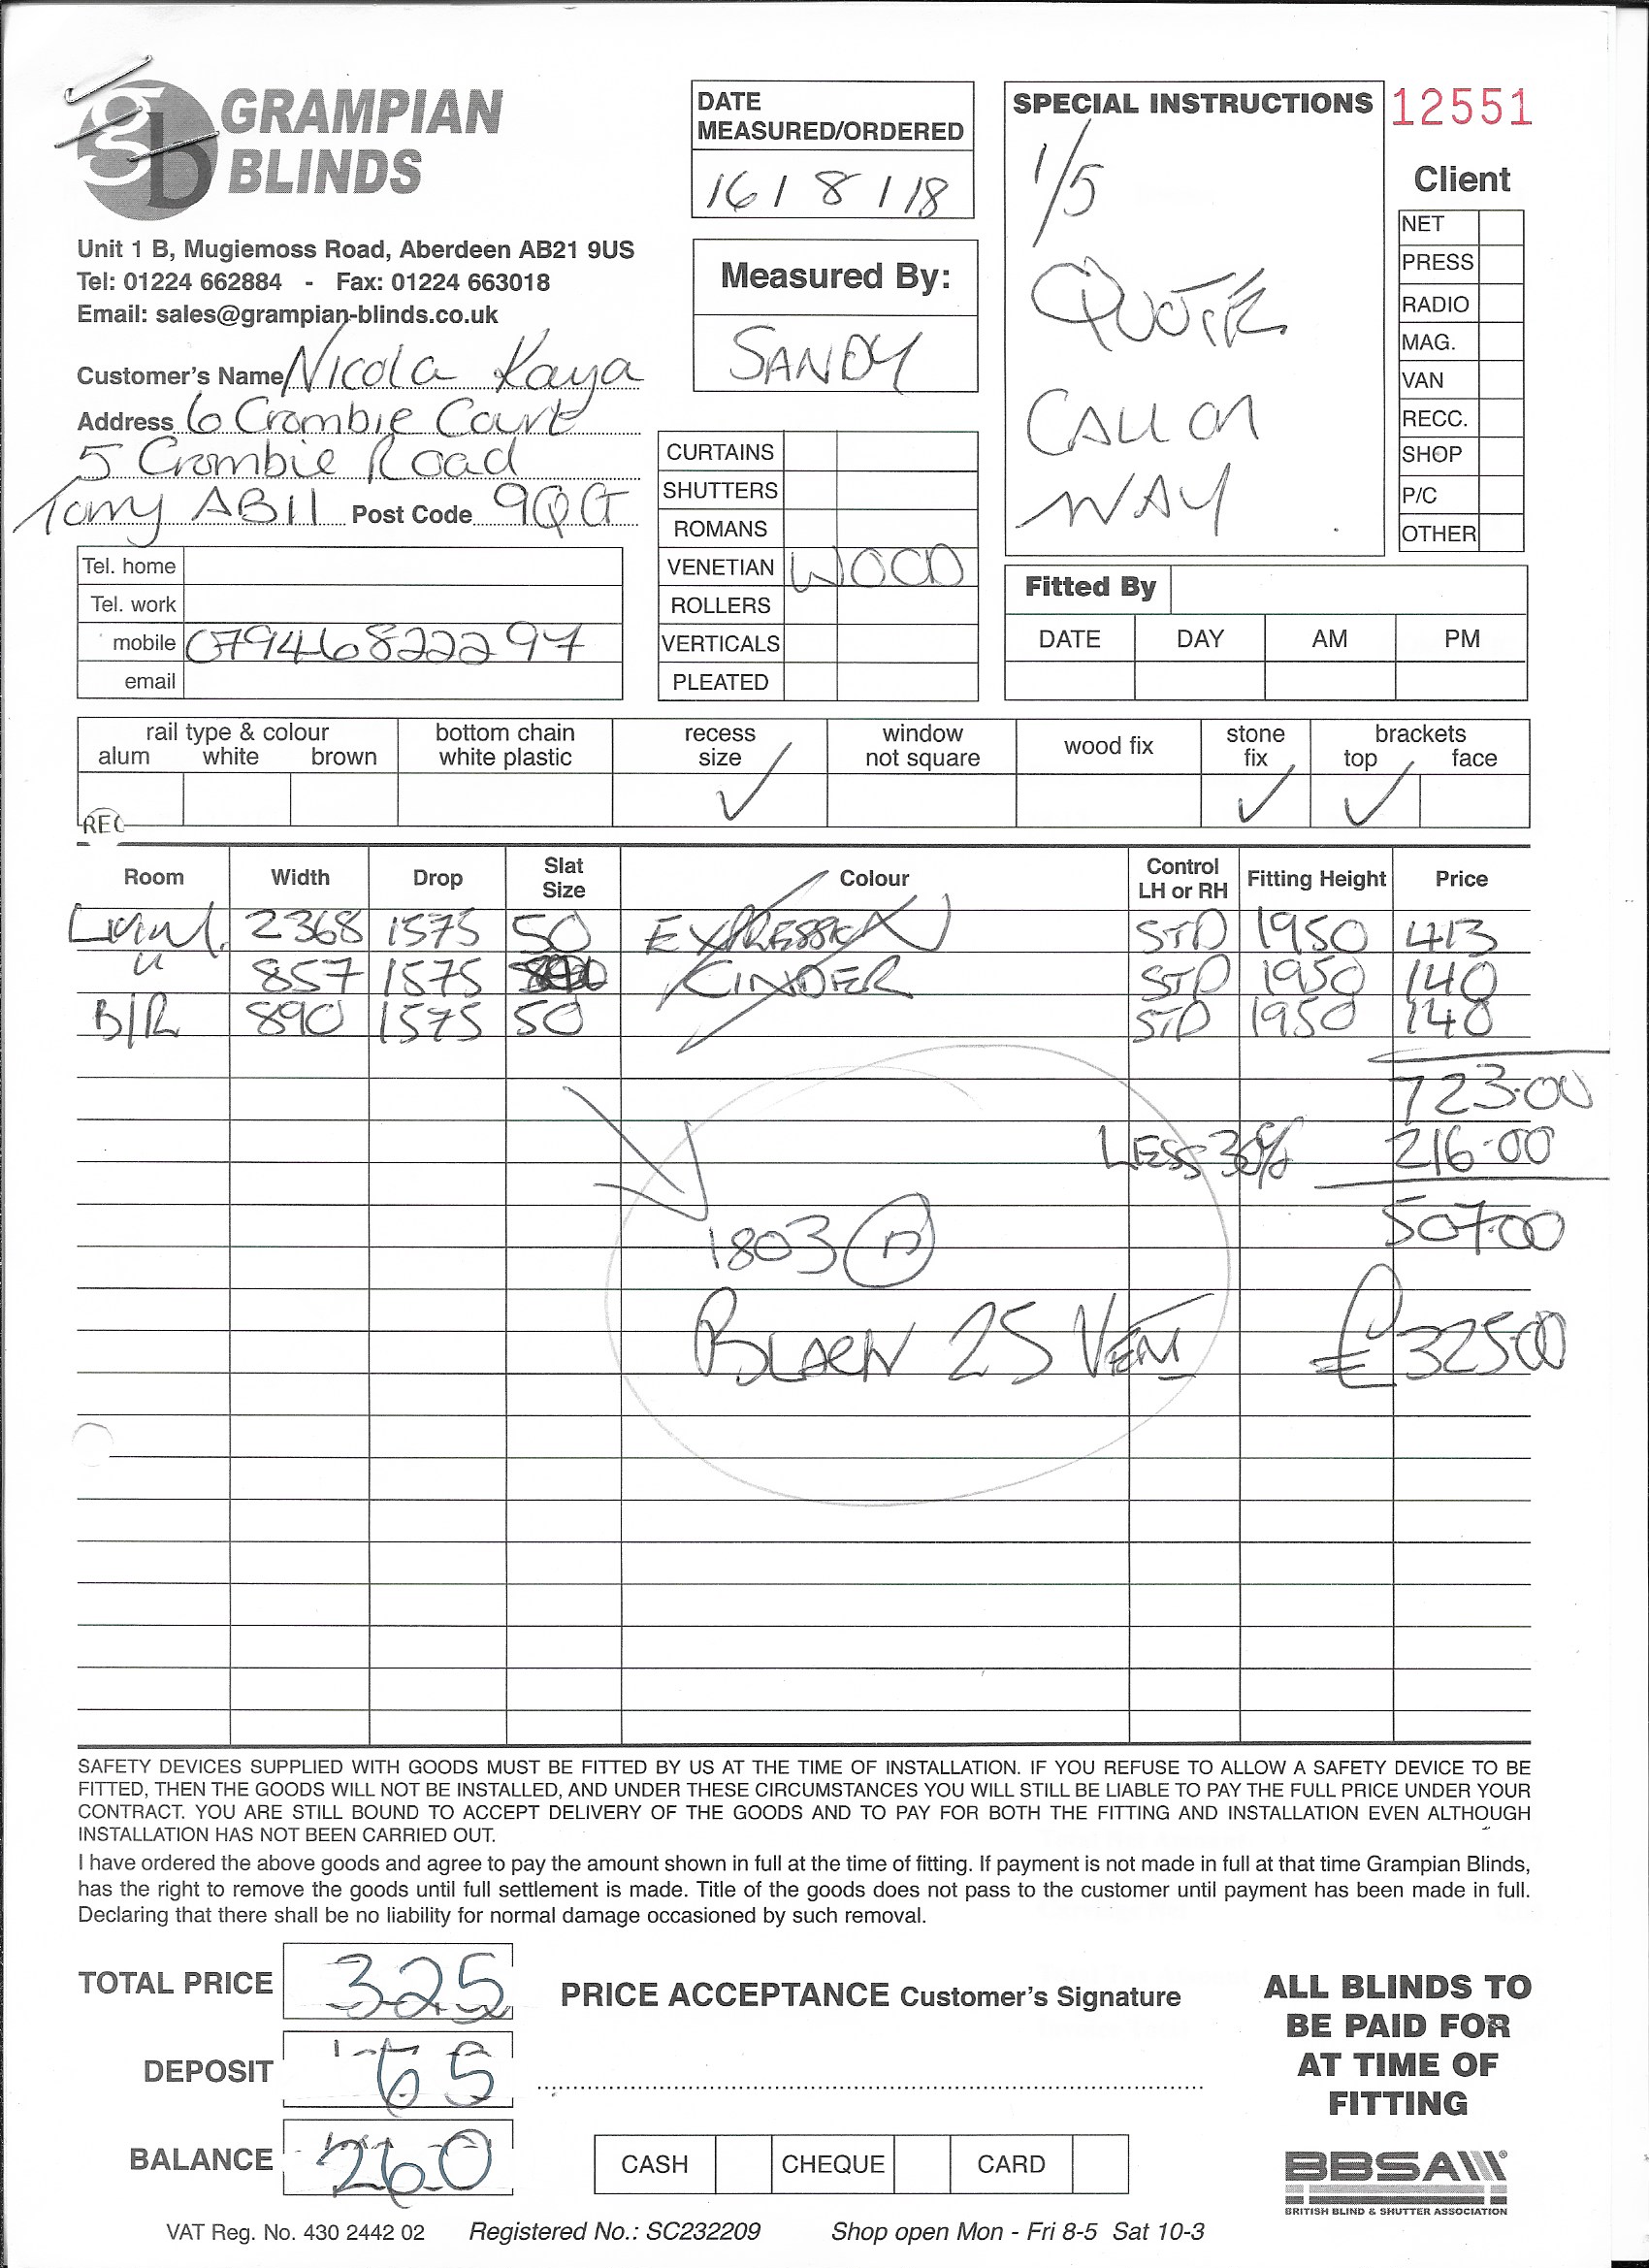 GRAMPIAN
BLINDS
Unit 1 B, Mugiemoss Road, Aberdeen AB21 9US
Tel: 01224 662884 - Fax: 01224 663018
Email: sales@grampian-blinds.co.uk
Customer's Name Nicola Kaya
Address 6 Crombie Court
5 Crombie Road
Torry AB11 Post Code 9QG
Tel. home
Tel. work
mobile 07946822297
email
DATE
MEASURED/ORDERED
16/8/18
Measured By:
SANDY
CURTAINS
SHUTTERS
ROMANS
VENETIAN WOOD
ROLLERS
VERTICALS
PLEATED
SPECIAL INSTRUCTIONS
1/5
QUOTE
CALL ON
WAY
12551
Client
NET
PRESS
RADIO
MAG.
VAN
RECC.
SHOP
P/C
OTHER
Fitted By
DATE DAY AM PM
rail type & colour
alum white brown
bottom chain
white plastic
recess
size ✓
window
not square
wood fix
stone
fix ✓
brackets
top ✓ face
REC
Room Width Drop Slat Size Colour Control LH or RH Fitting Height Price
2368 1575 50 EXPRESSION STD 1950 413
" 857 1575 CINDER STD 1950 140
B/R 890 1575 50 STD 1950 140
723.00
LESS 30% 216.00
507.00
1803
25 VEN £325.00
SAFETY DEVICES SUPPLIED WITH GOODS MUST BE FITTED BY US AT THE TIME OF INSTALLATION. IF YOU REFUSE TO ALLOW A SAFETY DEVICE TO BE
FITTED, THEN THE GOODS WILL NOT BE INSTALLED, AND UNDER THESE CIRCUMSTANCES YOU WILL STILL BE LIABLE TO PAY THE FULL PRICE UNDER YOUR
CONTRACT. YOU ARE STILL BOUND TO ACCEPT DELIVERY OF THE GOODS AND TO PAY FOR BOTH THE FITTING AND INSTALLATION EVEN ALTHOUGH
INSTALLATION HAS NOT BEEN CARRIED OUT.
I have ordered the above goods and agree to pay the amount shown in full at the time of fitting. If payment is not made in full at that time Grampian Blinds,
has the right to remove the goods until full settlement is made. Title of the goods does not pass to the customer until payment has been made in full.
Declaring that there shall be no liability for normal damage occasioned by such removal.
TOTAL PRICE 325
DEPOSIT 65
BALANCE 260
PRICE ACCEPTANCE Customer's Signature
CASH CHEQUE CARD
ALL BLINDS TO
BE PAID FOR
AT TIME OF
FITTING
BBSA
BRITISH BLIND & SHUTTER ASSOCIATION
VAT Reg. No. 430 2442 02 Registered No.: SC232209 Shop open Mon - Fri 8-5 Sat 10-3